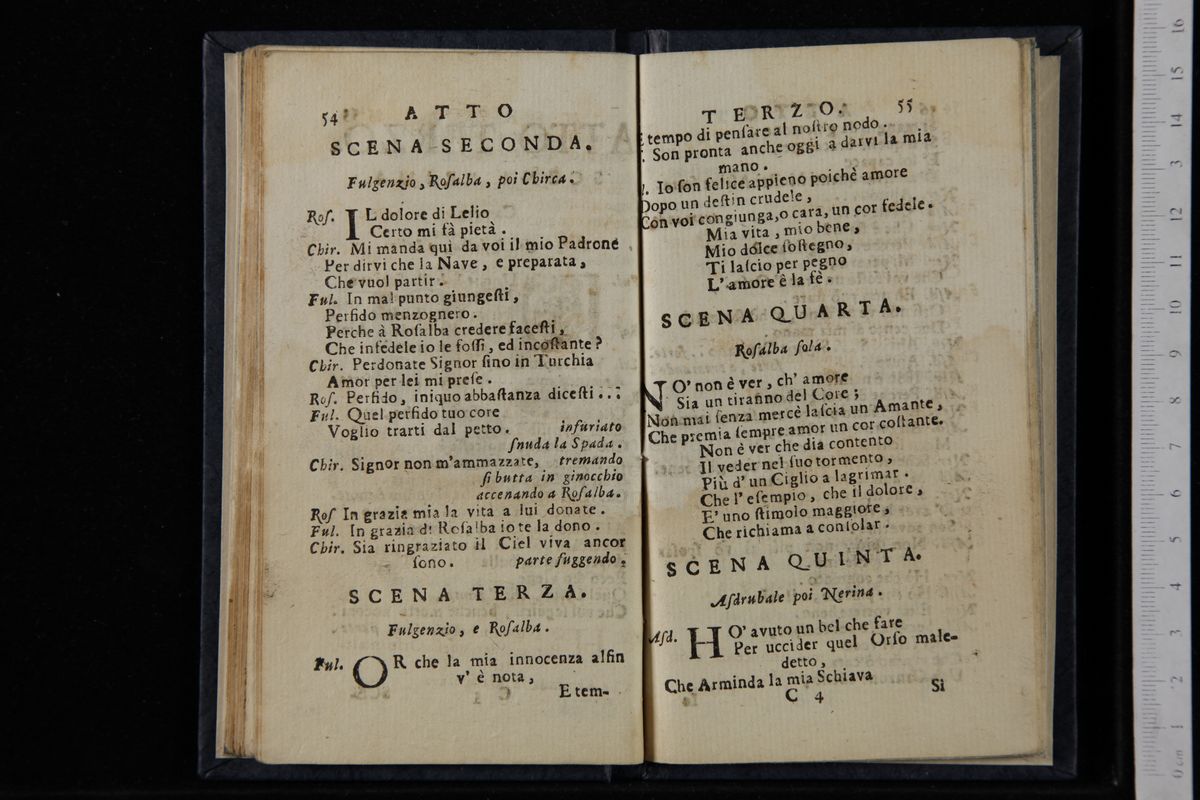 54 ATTO
SCENA SECONDA.
Fulgenzio, Roſalba, poi Chirca.
Roſ. IL dolore di Lelio
Certo mi fà pietà.
Chir. Mi manda qui da voi il mio Padrone
Per dirvi che la Nave, e preparata,
Che vuol partir.
Ful. In mal punto giungeſti,
Perfido menzognero.
Perche à Roſalba credere faceſti,
Che infedele io le foſſi, ed incoſtante?
Chir. Perdonate Signor ſino in Turchia
Amor per lei mi preſe.
Roſ. Perfido, iniquo abbaſtanza diceſti...
Ful. Quel perfido tuo core
Voglio trarti dal petto. infuriato
ſnuda la Spada.
Chir. Signor non m'ammazzate, tremando
ſi butta in ginocchio
accenando a Roſalba.
Roſ In grazia mia la vita a lui donate.
Ful. In grazia di Roſalba io te la dono.
Chir. Sia ringraziato il Ciel viva ancor
ſono. parte fuggendo.
SCENA TERZA.
Fulgenzio, e Roſalba.
Ful. OR che la mia innocenza alfin
v' è nota,
E tem-
TERZO. 55
tempo di penſare al noſtro nodo.
Son pronta anche oggi a darvi la mia
mano.
Io ſon felice appieno poichè amore
Dopo un deſtin crudele,
Con voi congiunga, o cara, un cor fedele.
Mia vita, mio bene,
Mio dolce ſoſtegno,
Ti laſcio per pegno
L'amore è la fè.
SCENA QUARTA.
Roſalba ſola.
NO' non è ver, ch' amore
Sia un tiranno del Core;
Non mai ſenza mercè laſcia un Amante,
Che premia ſempre amor un cor coſtante.
Non è ver che dia contento
Il veder nel ſuo tormento,
Più d' un Ciglio a lagrimar.
Che l' eſempio, che il dolore,
E' uno ſtimolo maggiore,
Che richiama a conſolar.
SCENA QUINTA.
Aſdrubale poi Nerina.
Aſd. HO' avuto un bel che fare
Per uccider quel Orſo male-
detto,
Che Arminda la mia Schiava
C 4 Si
0 cm 1 2 3 4 5 6 7 8 9 10 11 12 13 14 15 16